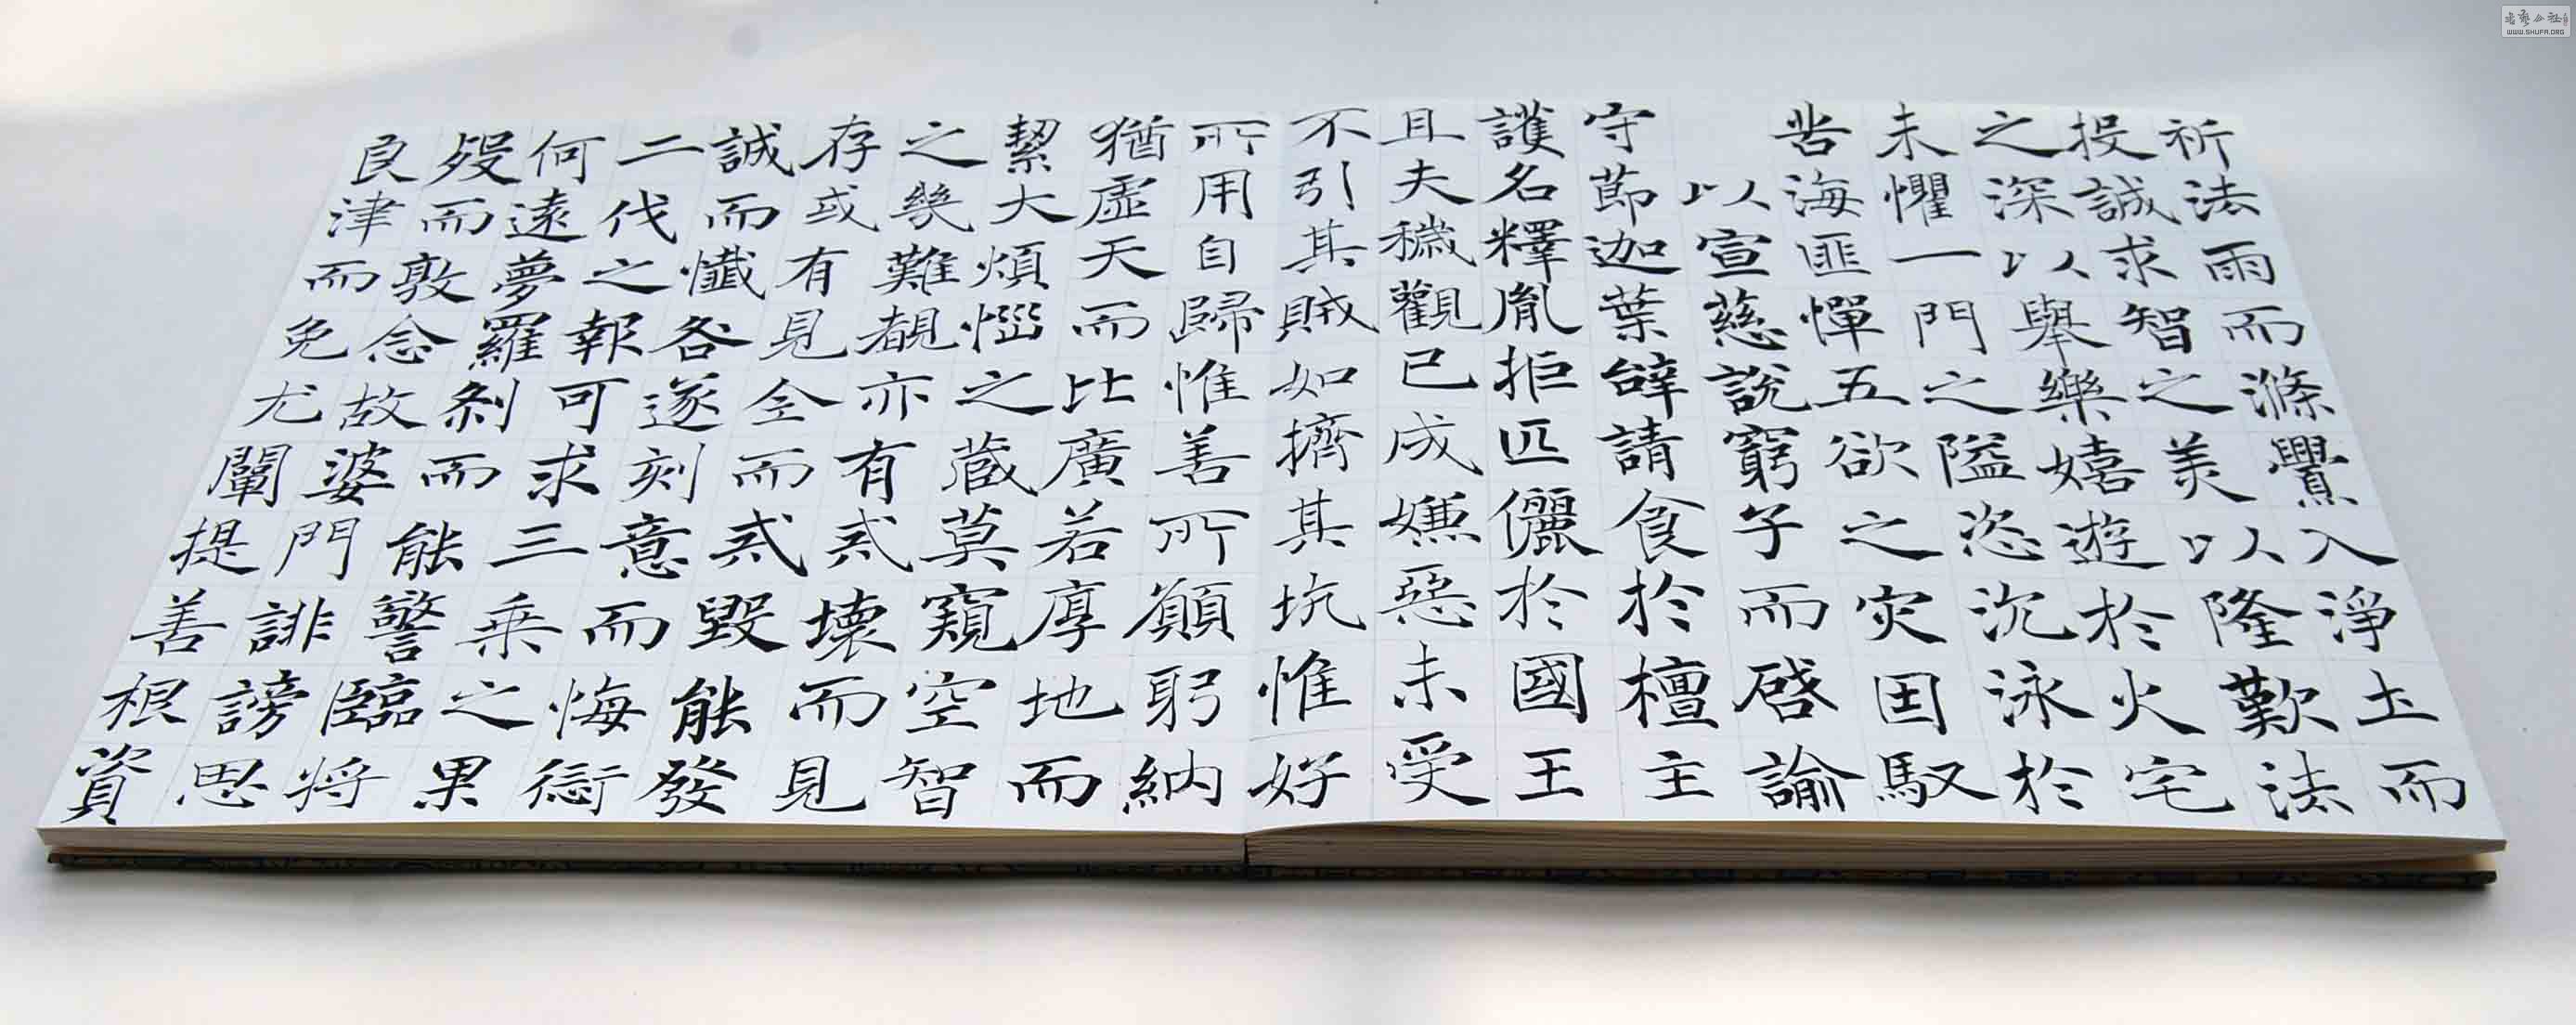 祈法雨而滌舋入淨土而
投誠求智之美以隆歎法
之深以舉樂嬉遊於火宅
未懼一門之隘恣沉泳於
苦海匪憚五欲之灾因馭
以宣慈說窮子而啓諭
守節迦葉辭請食於檀主
護名釋胤拒匹儷於國王
且夫穢觀已成嫌惡未受
不引其賊如擠其坑惟好
所用自歸惟善所願躬納
猶虛天而比廣若厚地而
絜大煩惱之藏莫窺空智
之幾難覩亦有貳壞而見
存或有見全而貳毀能發
誠而懺各遂刻意而悔愆
二代之報可求三乘之果
何遠夢羅剎而能警臨將
歿而敦念故婆門誹謗思
良津而免尤闡提善根資